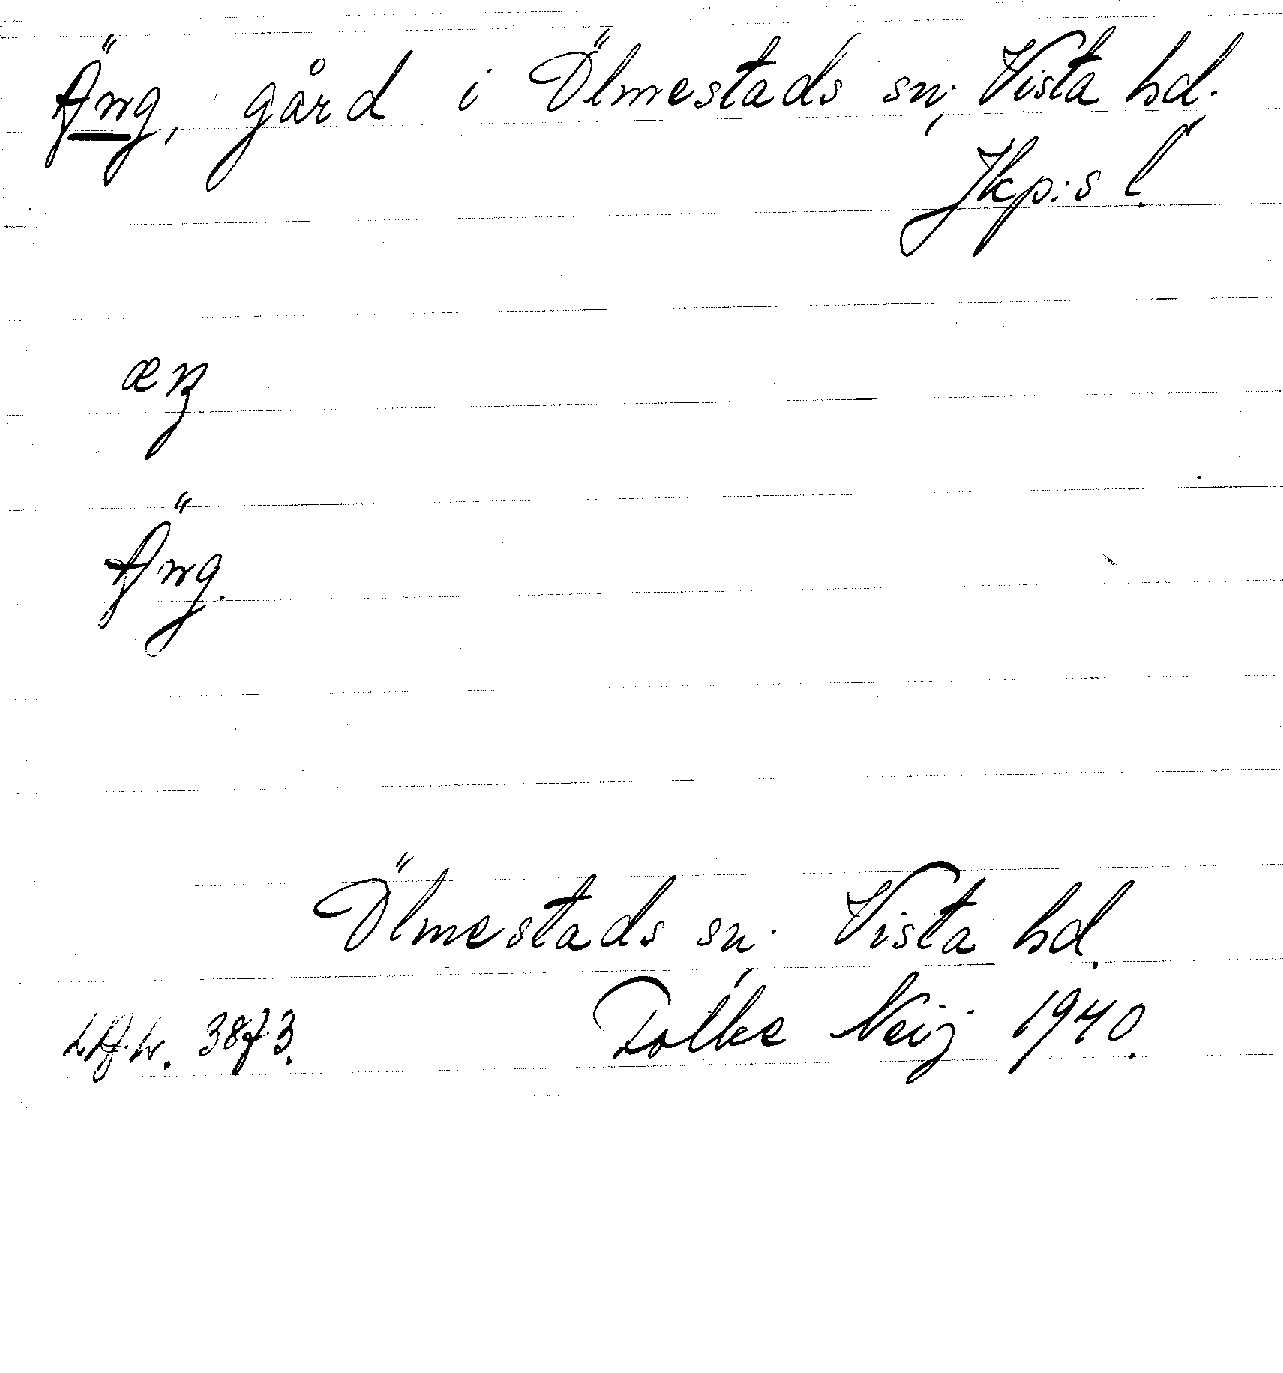 Äng, gård i Ölmestads sn, Vista hd.
Jkp:s l.
æŋ
Äng.
Ölmestads sn. Vista hd.
3873. Folke Neij 1940.